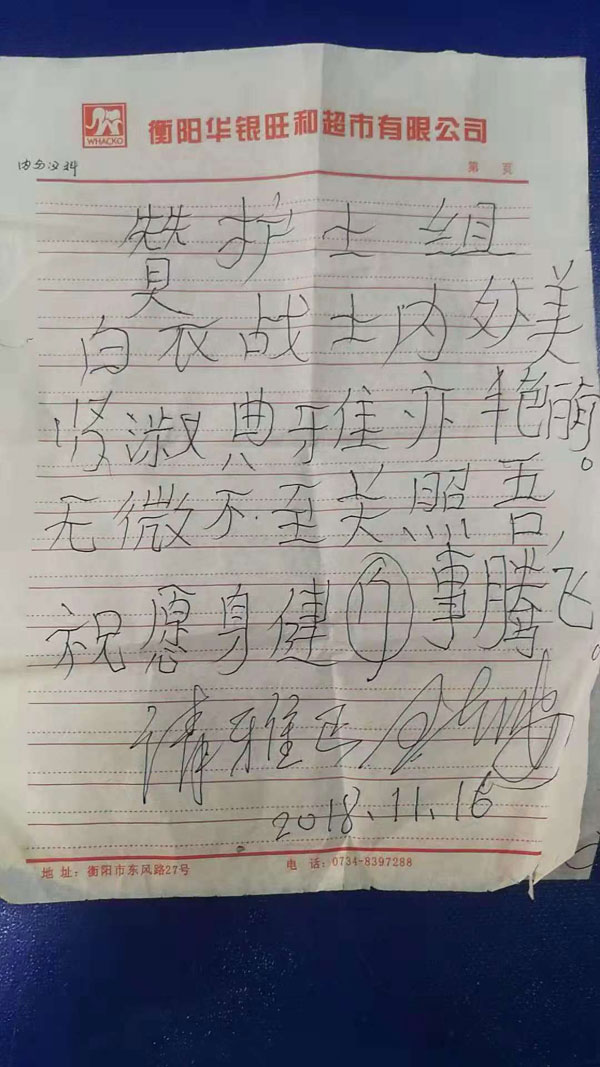 WHACKO
衡阳华银旺和超市有限公司
内分泌科
第 页
赞护士组
白衣战士内处美
贤淑典雅亦艳丽。
无微不至关照吾,
祝愿身健事腾飞。
请雅正
2018.11.16
地 址:衡阳市东风路27号 电 话:0734-8397288